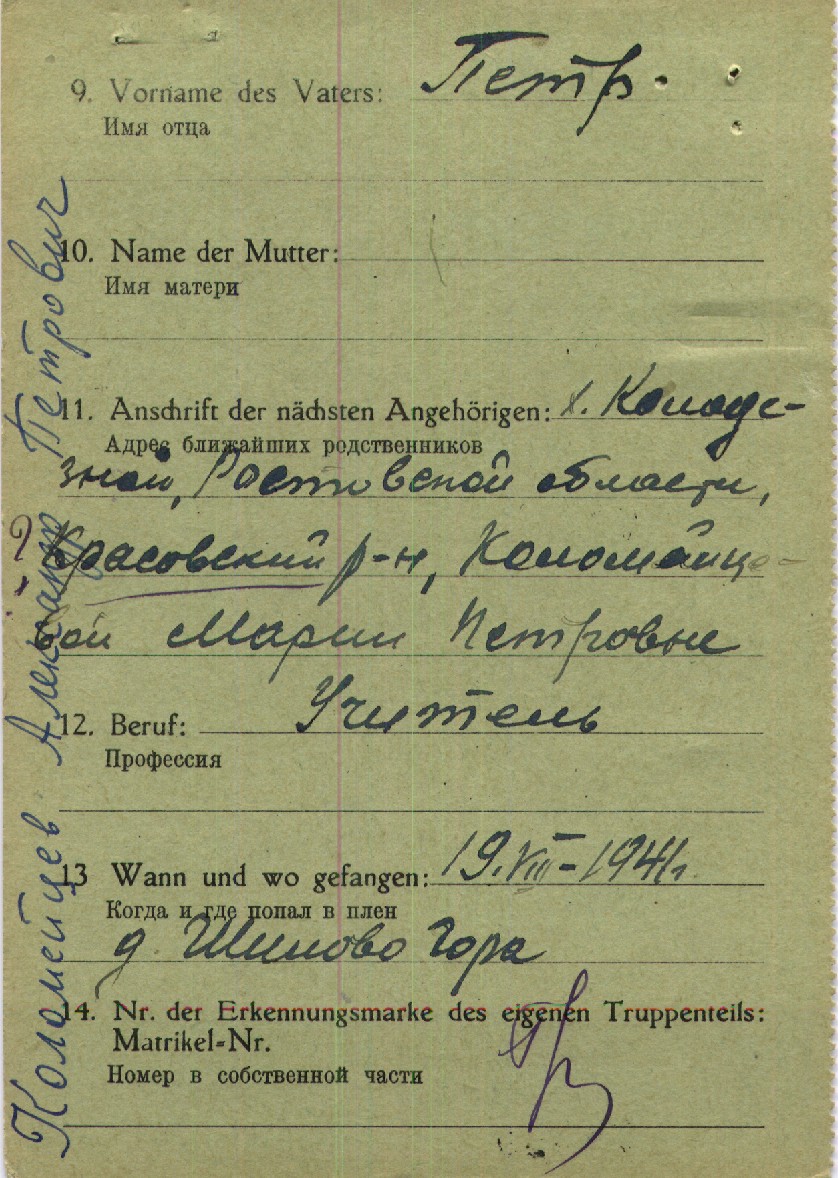 9. Vorname des Vaters: Петр.
Имя отца
10. Name der Mutter:
Имя матери
11. Anschrift der nächsten Angehörigen: х. Колоде-
Адрес ближайших родственников
зной, Ростовской области,
? Красовский р-н, Коломайце-
вой Марии Петровне
12. Beruf: Учитель
Профессия
13 Wann und wo gefangen: 19.VIII-1941г.
Когда и где попал в плен
д. Шилово Гора
14. Nr. der Erkennungsmarke des eigenen Truppenteils:
Matrikel-Nr.
Номер в собственной части
Коломейцев Александр Петрович